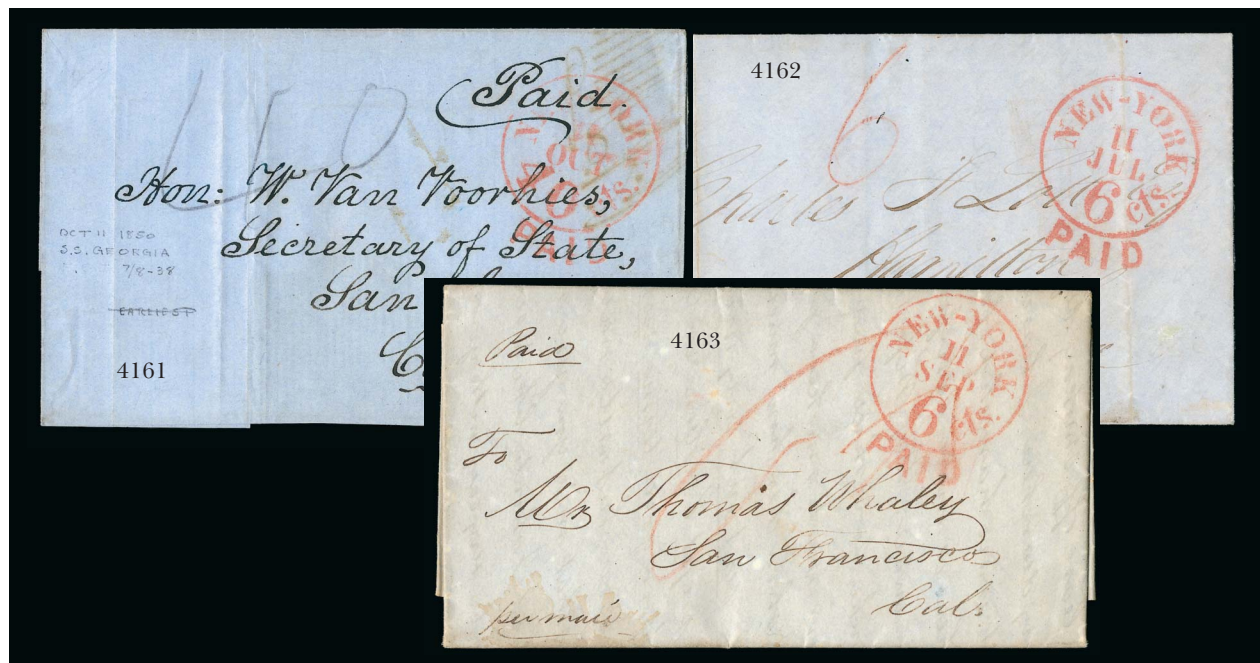 40
Paid.
NEW-YORK
OCT
40 cts.
PAID
Hon: W. Van Voorhies,
Secretary of State,
San
OCT 11 1850
S.S. GEORGIA
7/8-38
EARLIEST
4161
4162
6
NEW-YORK
11
JUL
6 cts.
PAID
Charles
Hamilton
4163
Paid
NEW-YORK
11
SEP
6 cts.
PAID
6
To
Mr Thomas Whaley
San Francisco
Cal.
per mail